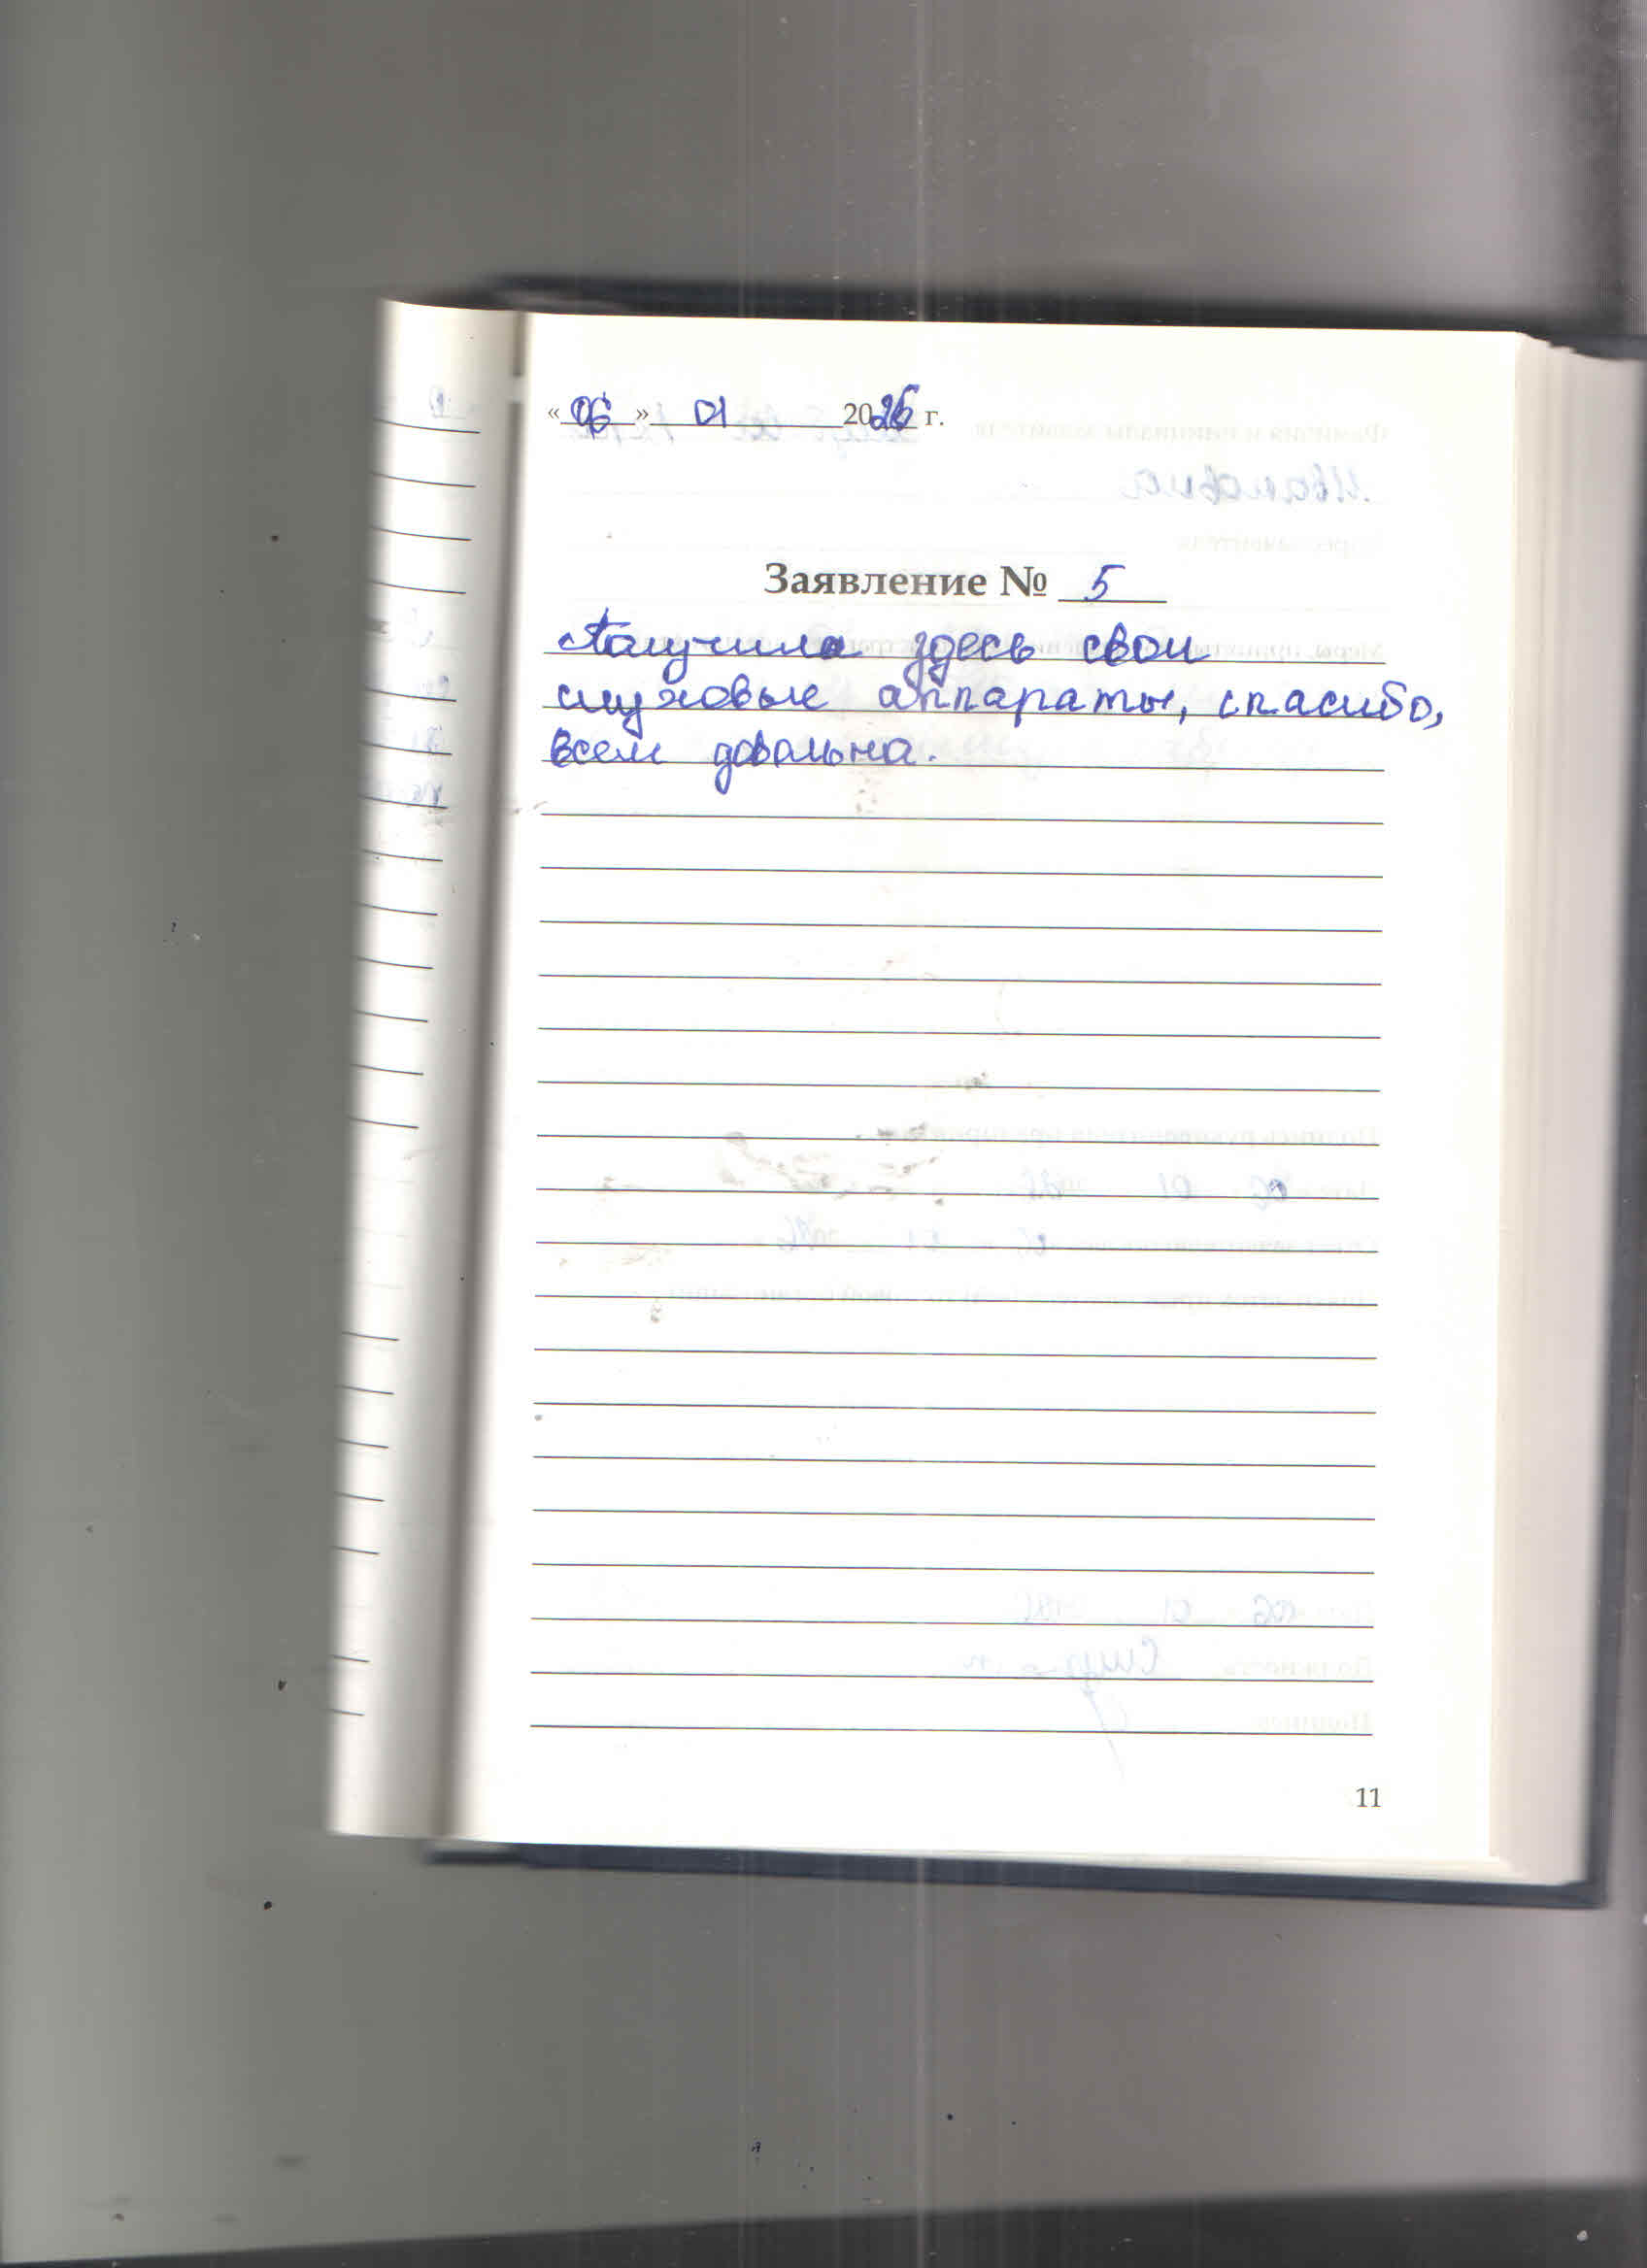 «06» 01 2026 г.
Заявление № 5
Получила здесь свои
слуховые аппараты, спасибо,
всем довольна.
11